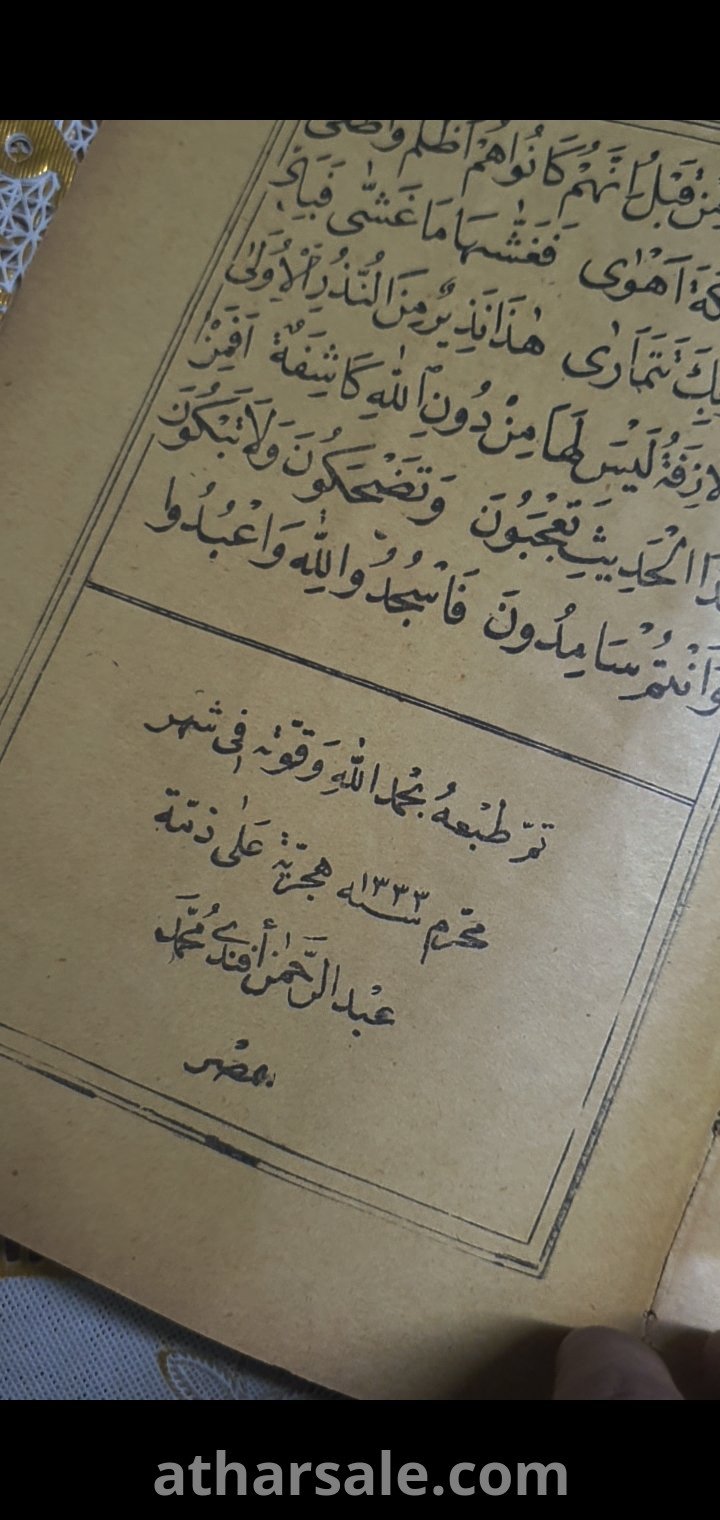 قَبْلُ اِنَّهُمْ كَانُوا هُمْ اَظْلَمَ وَاَطْغٰى
اَهْوٰى فَغَشّٰيهَا مَا غَشّٰى فَبِاَىِّ
تَتَمَارٰى هٰذَا نَذِيرٌ مِنَ النُّذُرِ الْاُولٰى
لَيْسَ لَهَا مِنْ دُونِ اللّٰهِ كَاشِفَةٌ اَفَمِنْ
الْحَدِيثِ تَعْجَبُونَ وَتَضْحَكُونَ وَلَا تَبْكُونَ
وَاَنْتُمْ سَامِدُونَ فَاسْجُدُوا لِلّٰهِ وَاعْبُدُوا
تمّ طبْعهُ بحمد اللّٰهِ وَقوّته فِى شهر
محرّم سنه ١٣٣٣ هجريّة عَلٰى ذمّة
عبْد الرَّحمٰن أفندى مُحَمَّد
بمصْر
atharsale.com